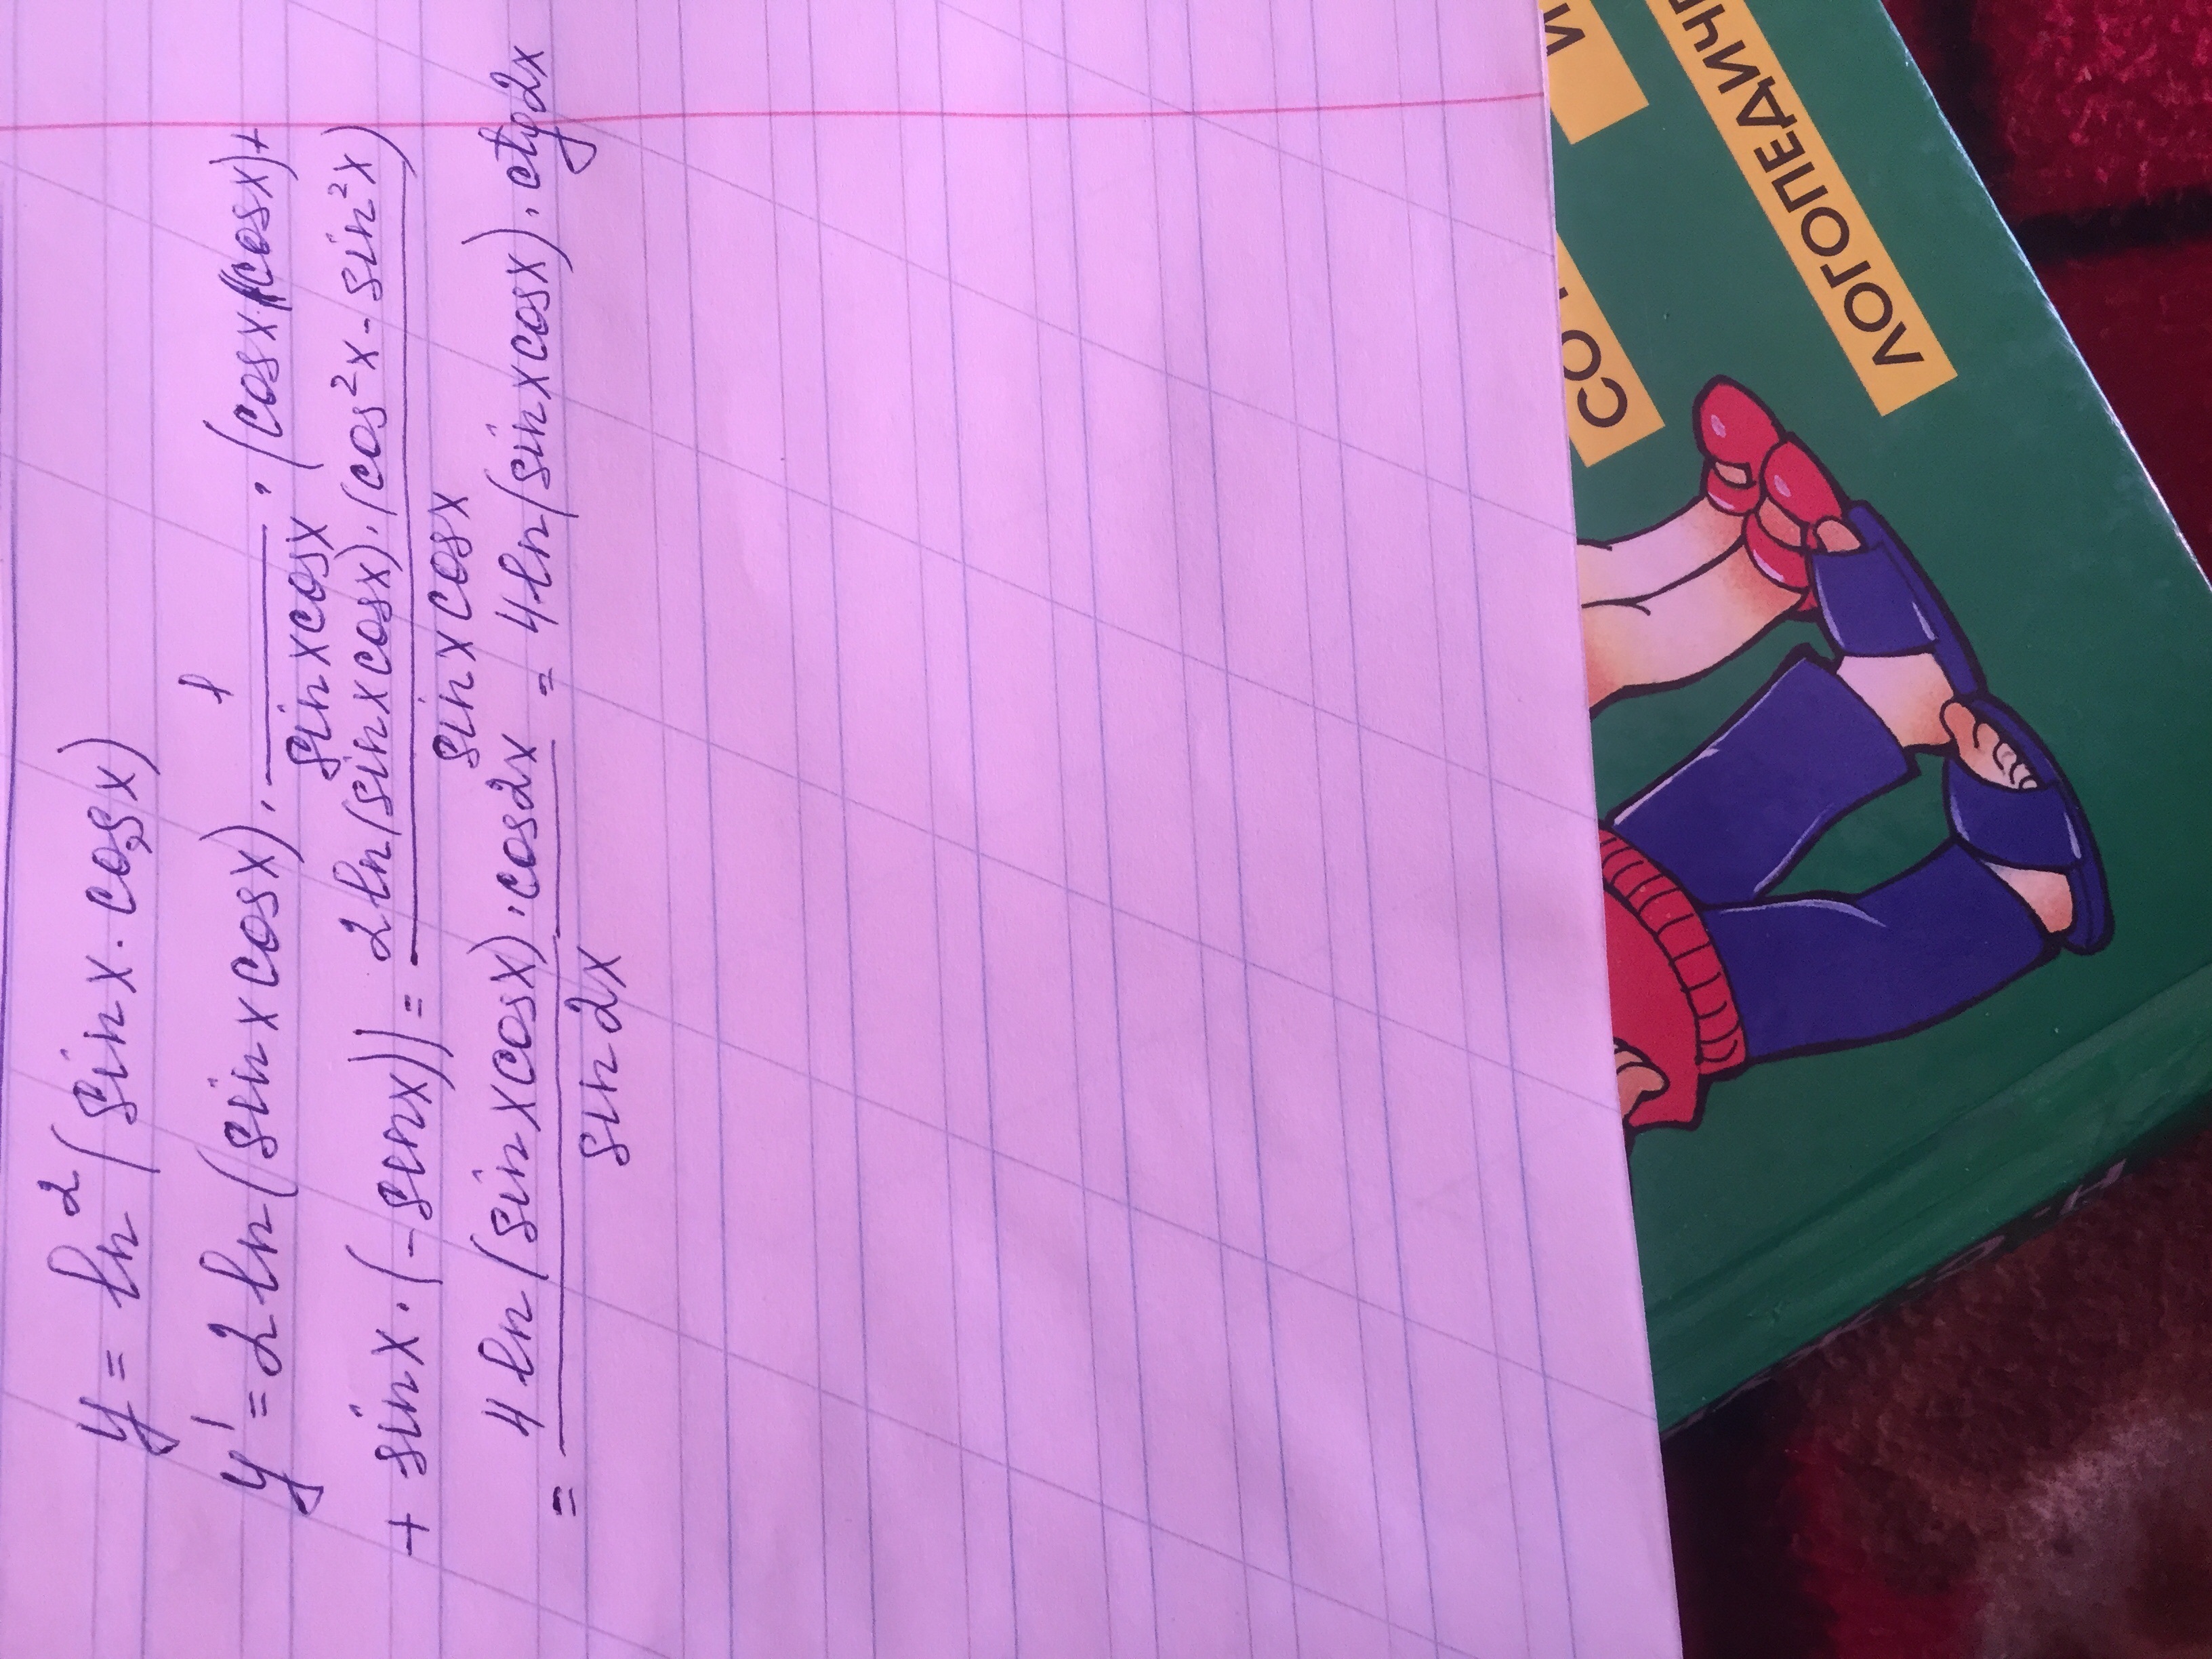 y = ln²(sin x · cos x)
y' = 2 ln(sin x cos x) · 1/(sin x cos x) · (cos x · (cos x) +
+ sin x · (- sin x)) = 2 ln(sin x cos x) · (cos² x - sin² x)/(sin x cos x)
= 4 ln(sin x cos x) · cos 2x/(sin 2x) = 4 ln(sin x cos x) · ctg 2x
ЛОГОПЕДИЧ
СО
И